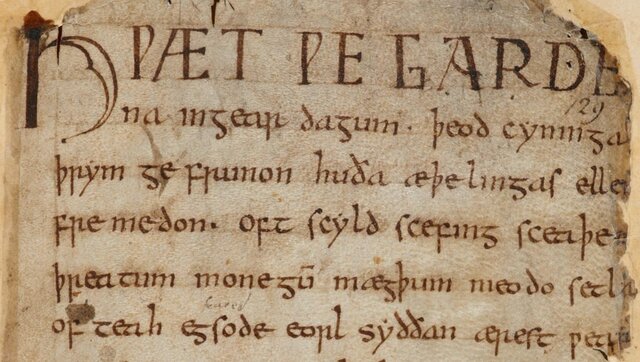 HǷÆT ǷE GARDE
na ingear dagum · þeod cyninga
þrym ge frunon huða æþelingas elle
fremedon · oft scyld scefing sceaþe
þreatum monegū mægþum meodo setla
of teah egsode eorl syððan ærest ƿear